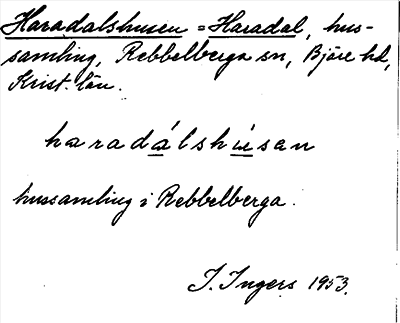 Haradalshusen = Haradal, hus-
samling, Rebbelberga sn, Bjäre hd,
Krist. län.
haradálshúsan
hussamling i Rebbelberga.
I. Ingers 1953.